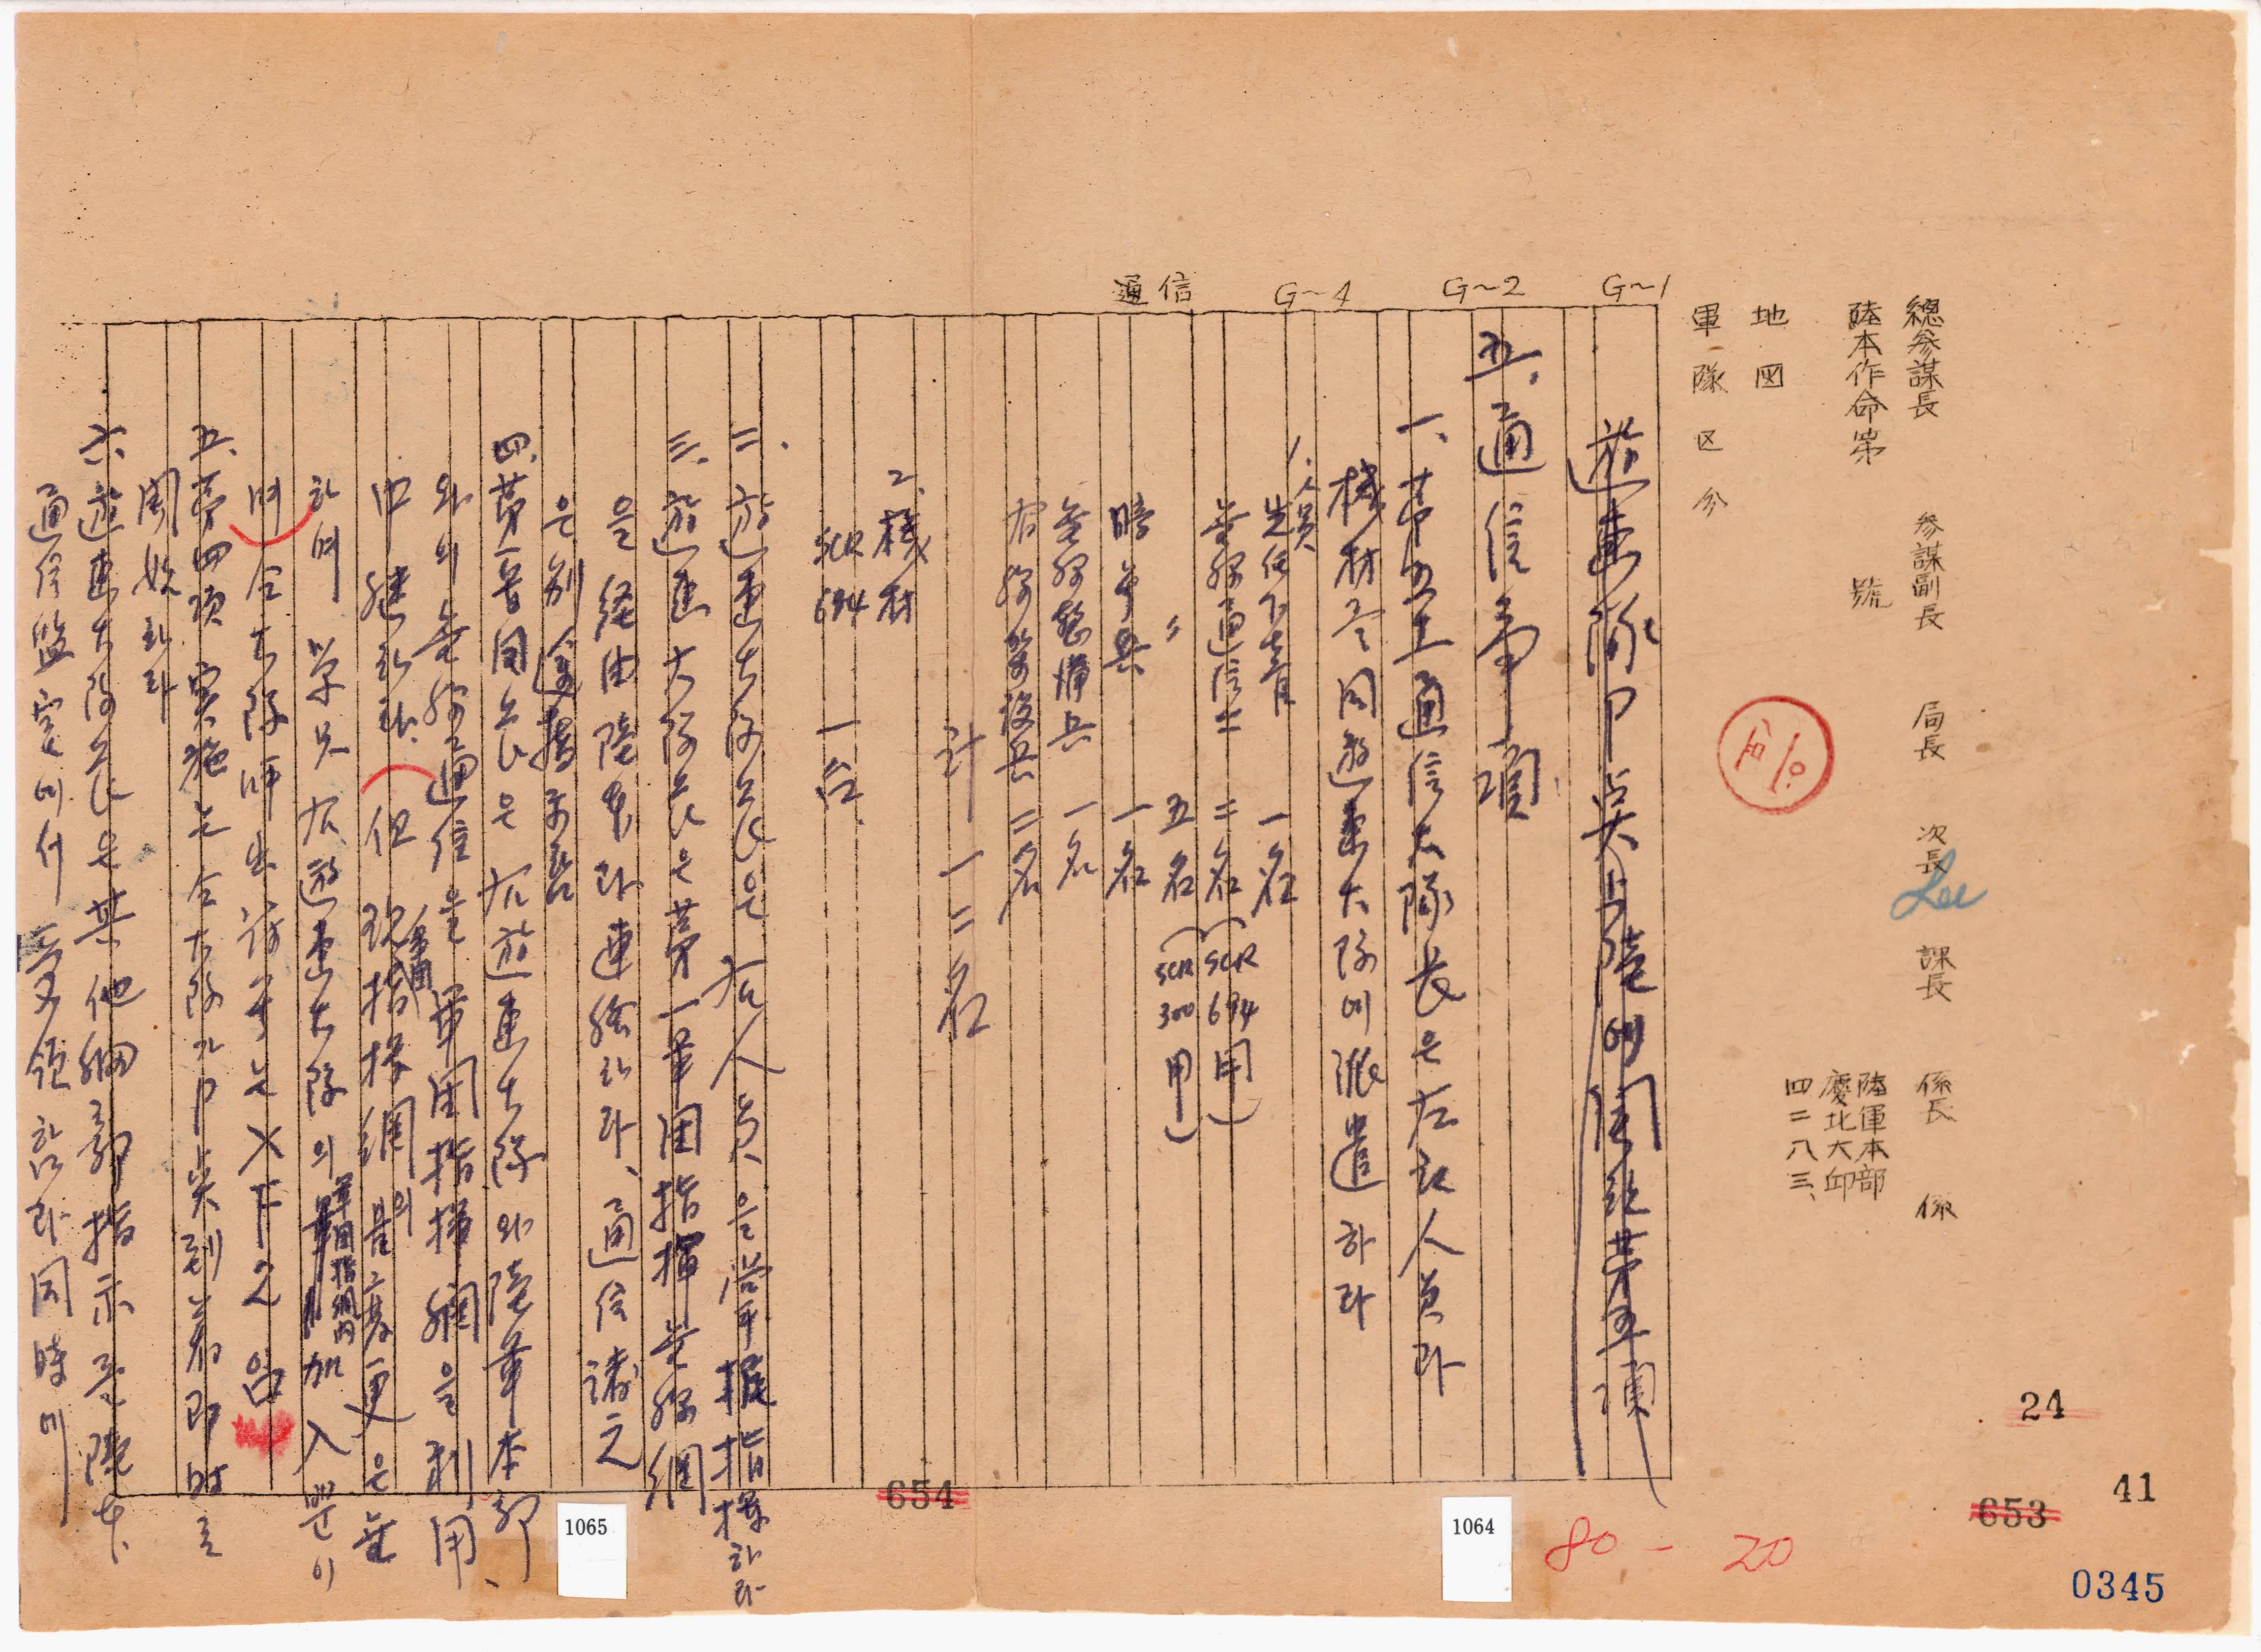 總參謀長 參謀副長 局長 次長 課長 係長 係
Lee
陸本作命第 號
陸軍本部
慶北大邱
四二八三、
地図
軍隊区分
G~1
G~2
G~4
通信
遊擊隊 陸 第五項
五. 通信事項
一、第五五通信大隊長은 左記人員과
機材를 同遊擊大隊에 派遣하라
1. 人員
先任下士官 一名
無線通信士 二名 (SCR 694 用)
〃 五名 (SCR 300 用)
暗号兵 一名
無線整備兵 一名
有線架設兵 二名
計 一二名
2. 機材
SCR 694 一台.
二. 遊擊大隊長은 右人員을 掌握指揮하라
三. 遊擊大隊長은 第一軍團指揮無線網
을 経由 陸本과 連絡하라、通信諸元
은 別途指示함
四. 第一軍團長은 右遊擊大隊와 陸軍本部
와의 無線通信을 軍團指揮網을 利用、
中継하라. 但 現指揮網의 変更은 無
하며 單只 右遊擊大隊의 軍團指揮網內 加入뿐이
며 仝大隊呼出符号는 X F 2 임
五. 第四項 実施는 仝大隊가 到着 即時로
開始하라
六. 遊擊大隊長은 其他 細部指示를 陸本
通信監室에서 受領함과 同時에
654
653
24
41
1065
1064
80 - 20
0345